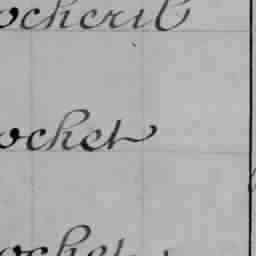 ocheril
ochet
ochet